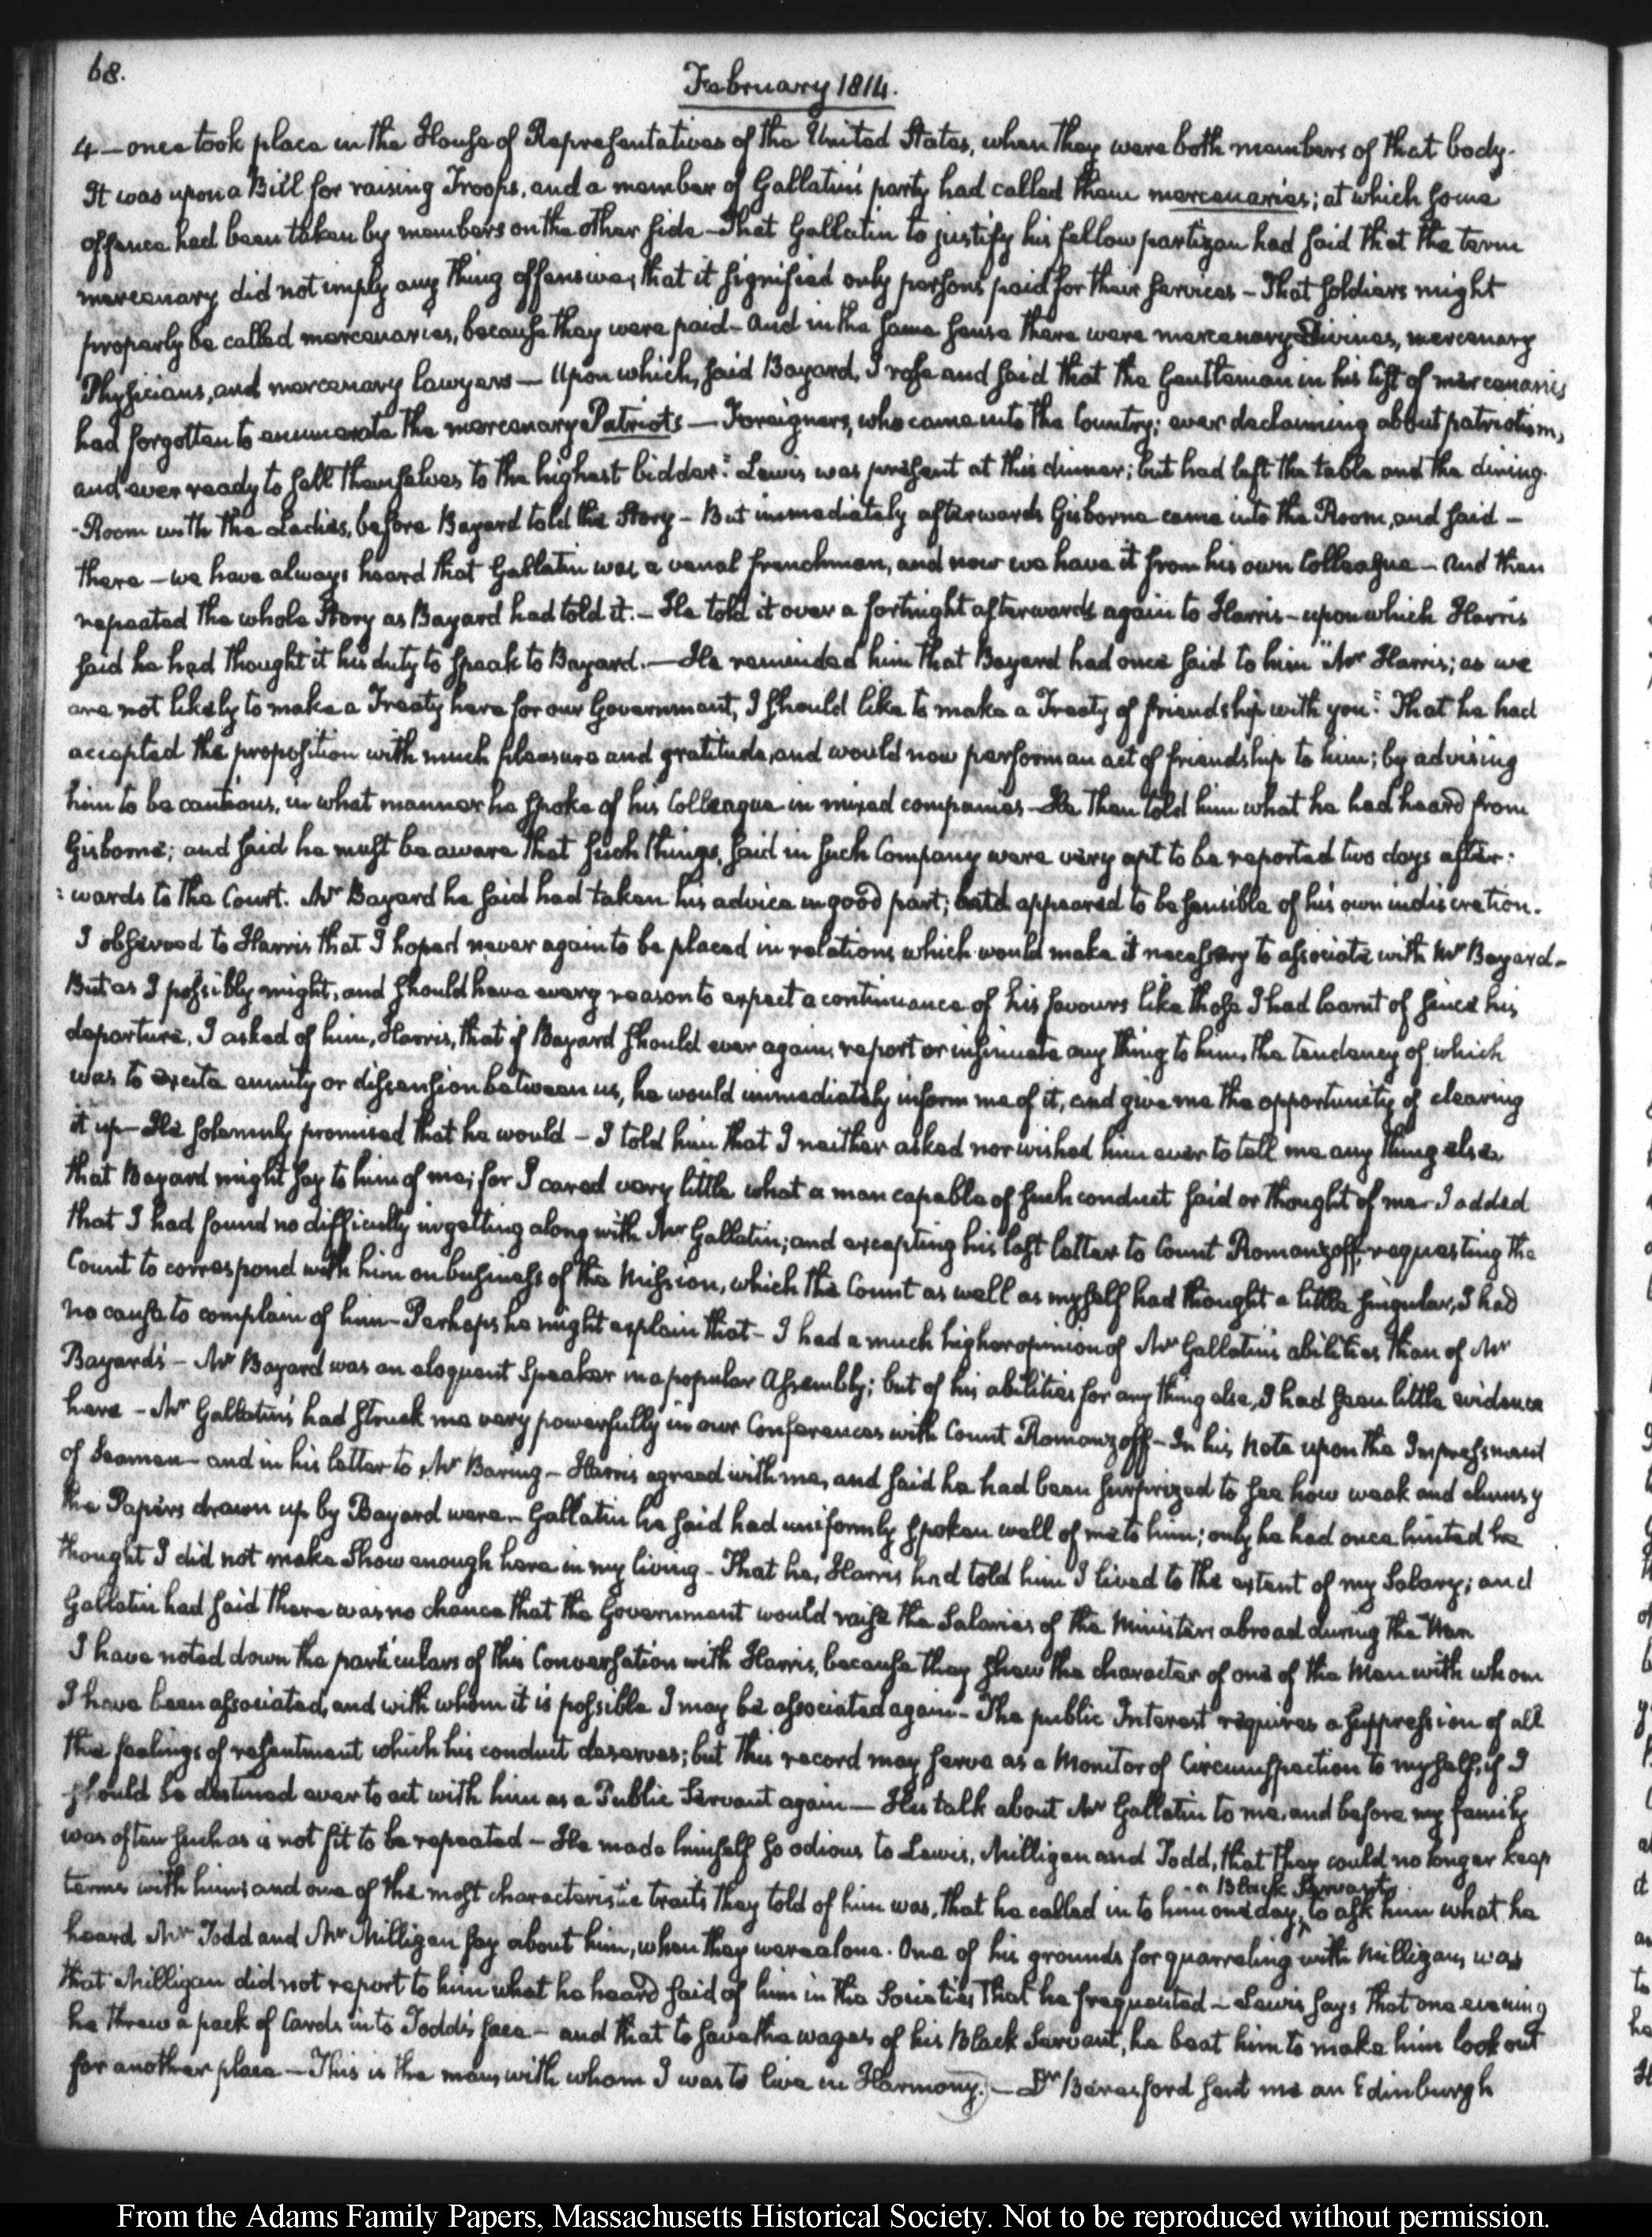 68.
February 1814.
4 — once took place in the House of Representatives of the United States, when they were both members of that body.
It was upon a Bill for raising Troops, and a member of Gallatin's party had called them mercenaries; at which some
offence had been taken by members on the other side — That Gallatin to justify his fellow partizan had said that the term
mercenary did not imply any thing offensive, that it signified only persons paid for their services — That soldiers might
properly be called mercenaries, because they were paid — and in the same sense there were mercenary Divines, mercenary
Physicians, and mercenary lawyers — Upon which, said Bayard, I rose and said that the Gentleman in his list of mercenaries
had forgotten to enumerate the mercenary Patriots — Foreigners, who came into the Country; ever declaiming about patriotism,
and ever ready to sell themselves to the highest bidder." Lewis was present at this dinner; but had left the table and the dining-
-Room with the Ladies, before Bayard told the Story — But immediately afterwards Gisborne came into the Room, and said —
there — we have always heard that Gallatin was a venal frenchman, and now we have it from his own Colleague — And then
repeated the whole Story as Bayard had told it. — He told it over a fortnight afterwards again to Harris — upon which Harris
said he had thought it his duty to speak to Bayard. — He reminded him that Bayard had once said to him "Mr Harris; as we
are not likely to make a Treaty here for our Government, I should like to make a Treaty of friendship with you": That he had
accepted the proposition with much pleasure and gratitude, and would now perform an act of friendship to him; by advising
him to be cautious, in what manner he spoke of his Colleague in mixed companies — He then told him what he had heard from
Gisborne; and said he must be aware that such things, said in such Company were very apt to be reported two days after:
:wards to the Court. Mr Bayard he said had taken his advice in good part; and appeared to be sensible of his own indiscretion.
I observed to Harris that I hoped never again to be placed in relations which would make it necessary to associate with Mr Bayard —
But as I possibly might, and should have every reason to expect a continuance of his favours like those I had learnt of since his
departure, I asked of him, Harris, that if Bayard should ever again, report or insinuate any thing to him, the tendency of which
was to excite enmity or dissension between us, he would immediately inform me of it, and give me the opportunity of clearing
it up — He solemnly promised that he would — I told him that I neither asked nor wished him ever to tell me any thing else
that Bayard might say to him of me; for I cared very little what a man capable of such conduct said or thought of me — I added
that I had found no difficulty in getting along with Mr Gallatin; and excepting his last letter to Count Romanzoff, requesting the
Count to correspond with him on business of the Mission, which the Count as well as myself had thought a little singular, I had
no cause to complain of him — Perhaps he might explain that — I had a much higher opinion of Mr Gallatin's abilities than of Mr
Bayard's — Mr Bayard was an eloquent Speaker in a popular Assembly; but of his abilities for any thing else, I had seen little evidence
here — Mr Gallatin's had struck me very powerfully in our Conferences with Count Romanzoff — In his Note upon the Impressment
of Seamen — and in his letter to Mr Baring — Harris agreed with me, and said he had been surprized to see how weak and clumsy
the Papers drawn up by Bayard were — Gallatin he said had uniformly spoken well of me to him; only he had once hinted he
thought I did not make show enough here in my living — That he, Harris had told him I lived to the extent of my Salary; and
Gallatin had said there was no chance that the Government would raise the Salaries of the Ministers abroad during the War
I have noted down the particulars of this Conversation with Harris, because they shew the character of one of the Men with whom
I have been associated, and with whom it is possible I may be associated again — The public Interest requires a suppression of all
the feelings of resentment which his conduct deserves; but this record may serve as a Monitor of Circumspection to myself, if I
should be destined ever to act with him as a Public Servant again — His talk about Mr Gallatin to me, and before my family
was often such as is not fit to be repeated — He made himself so odious to Lewis, Milligan and Todd, that they could no longer keep
terms with him; and one of the most characteristic traits they told of him was, that he called in to him one day, a Black Servant to ask him what he
heard Mr Todd and Mr Milligan say about him, when they were alone. One of his grounds for quarreling with Milligan, was
that Milligan did not report to him what he heard said of him in the Societies that he frequented — Lewis says that one evening
he threw a pack of Cards into Todd's face — and that to save the wages of his Black Servant, he beat him to make him look out
for another place — This is the man, with whom I was to live in Harmony. — Dr Beresford sent me an Edinburgh
From the Adams Family Papers, Massachusetts Historical Society. Not to be reproduced without permission.